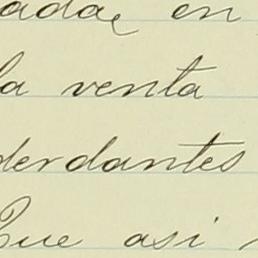 ada en
la venta
derdantes
Que asi